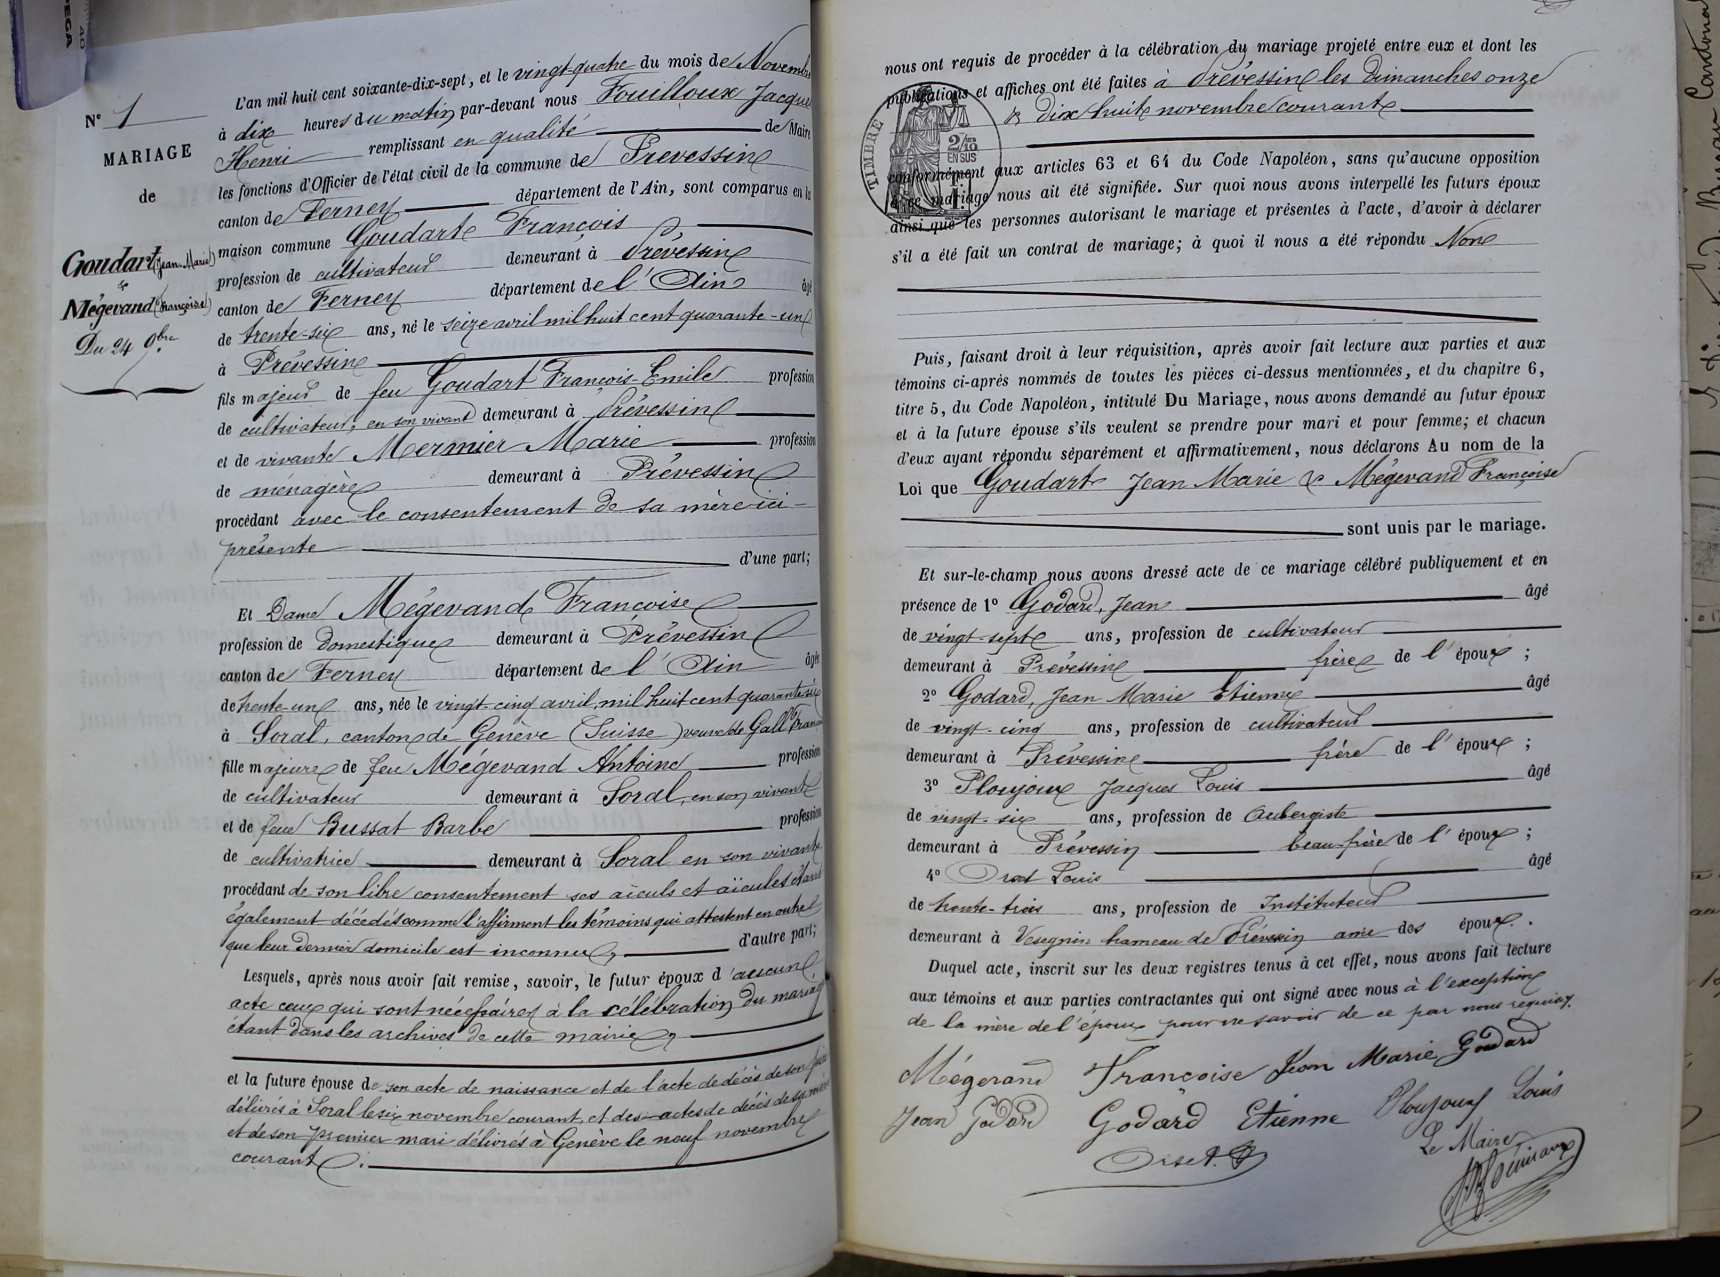 N° 1
MARIAGE
de
Goudart (Jean-Marie)
&
Mégevand (Françoise)
Du 24 9bre
L'an mil huit cent soixante-dix-sept, et le vingt-quatre du mois de Novembre
à dix heures du matin par-devant nous Fouilloux Jacques
Henri remplissant en qualité de Maire
les fonctions d'Officier de l'état civil de la commune de Prevessin
canton de Ferney département de l'Ain, sont comparus en la
maison commune Goudart François
profession de cultivateur demeurant à Prévessin
canton de Ferney département de l'Ain âgé
de trente-six ans, né le seize avril mil huit cent quarante-un
à Prévessin
fils majeur de feu Goudart François-Emile profession
de cultivateur, en son vivant demeurant à Prévessin
et de vivante Mermier Marie profession
de ménagère demeurant à Prévessin
procédant avec le consentement de sa mère ici-
présente d'une part;
Et Dame Mégevand Francoise
profession de Domestique demeurant à Prévessin
canton de Ferney département de l'Ain âgée
de trente-un ans, née le vingt cinq avril mil huit cent quarante six
à Soral, canton de Genève (Suisse) veuve de Gall
fille majeure de feu Mégevand Antoine profession
de cultivateur demeurant à Soral, en son vivant
et de feue Bussat Barbe profession
de cultivatrice demeurant à Soral en son vivant
procédant de son libre consentement ses aïeuls et aïeules étant
également décédés comme l'affirment les témoins qui attestent en outre
que leur dernier domicile est inconnu, d'autre part;
Lesquels, après nous avoir fait remise, savoir, le futur époux d'aucun
acte ceux qui sont nécessaires à la célébration du mariage
étant dans les archives de cette mairie,
et la future épouse de son acte de naissance et de l'acte de décès de son père
délivrés à Soral le six novembre courant, et des actes de décès de sa mère
et de son premier mari délivrés à Genève le neuf novembre
courant.
nous ont requis de procéder à la célébration du mariage projeté entre eux et dont les
publications et affiches ont été faites à Prévessin les Dimanches onze
& dix huit novembre courant
TIMBRE
2/10
EN SUS
conformément aux articles 63 et 64 du Code Napoléon, sans qu'aucune opposition
à ce mariage nous ait été signifiée. Sur quoi nous avons interpellé les futurs époux
ainsi que les personnes autorisant le mariage et présentes à l'acte, d'avoir à déclarer
s'il a été fait un contrat de mariage; à quoi il nous a été répondu Non
Puis, faisant droit à leur réquisition, après avoir fait lecture aux parties et aux
témoins ci-après nommés de toutes les pièces ci-dessus mentionnées, et du chapitre 6,
titre 5, du Code Napoléon, intitulé Du Mariage, nous avons demandé au futur époux
et à la future épouse s'ils veulent se prendre pour mari et pour femme; et chacun
d'eux ayant répondu séparément et affirmativement, nous déclarons Au nom de la
Loi que Goudart Jean Marie & Mégevand Françoise
sont unis par le mariage.
Et sur-le-champ nous avons dressé acte de ce mariage célébré publiquement et en
présence de 1° Godard, Jean âgé
de vingt-sept ans, profession de cultivateur
demeurant à Prévessin frère de l'époux ;
2° Godard, Jean Marie Etienne âgé
de vingt-cinq ans, profession de cultivateur
demeurant à Prévessin frère de l'époux ;
3° Ploujoux Jacques Louis âgé
de vingt-six ans, profession de Aubergiste
demeurant à Prévessin beau-frère de l'époux ;
4° Orset Louis âgé
de trente-trois ans, profession de Instituteur
demeurant à Vesegnin hameau de Prévessin ami des époux.
Duquel acte, inscrit sur les deux registres tenus à cet effet, nous avons fait lecture
aux témoins et aux parties contractantes qui ont signé avec nous à l'exception
de la mère de l'époux pour ne savoir de ce par nous requise.
Mégevand Françoise Jean Marie Godard
Jean Godard Godard Etienne Ploujoux Louis
Orset. Le Maire